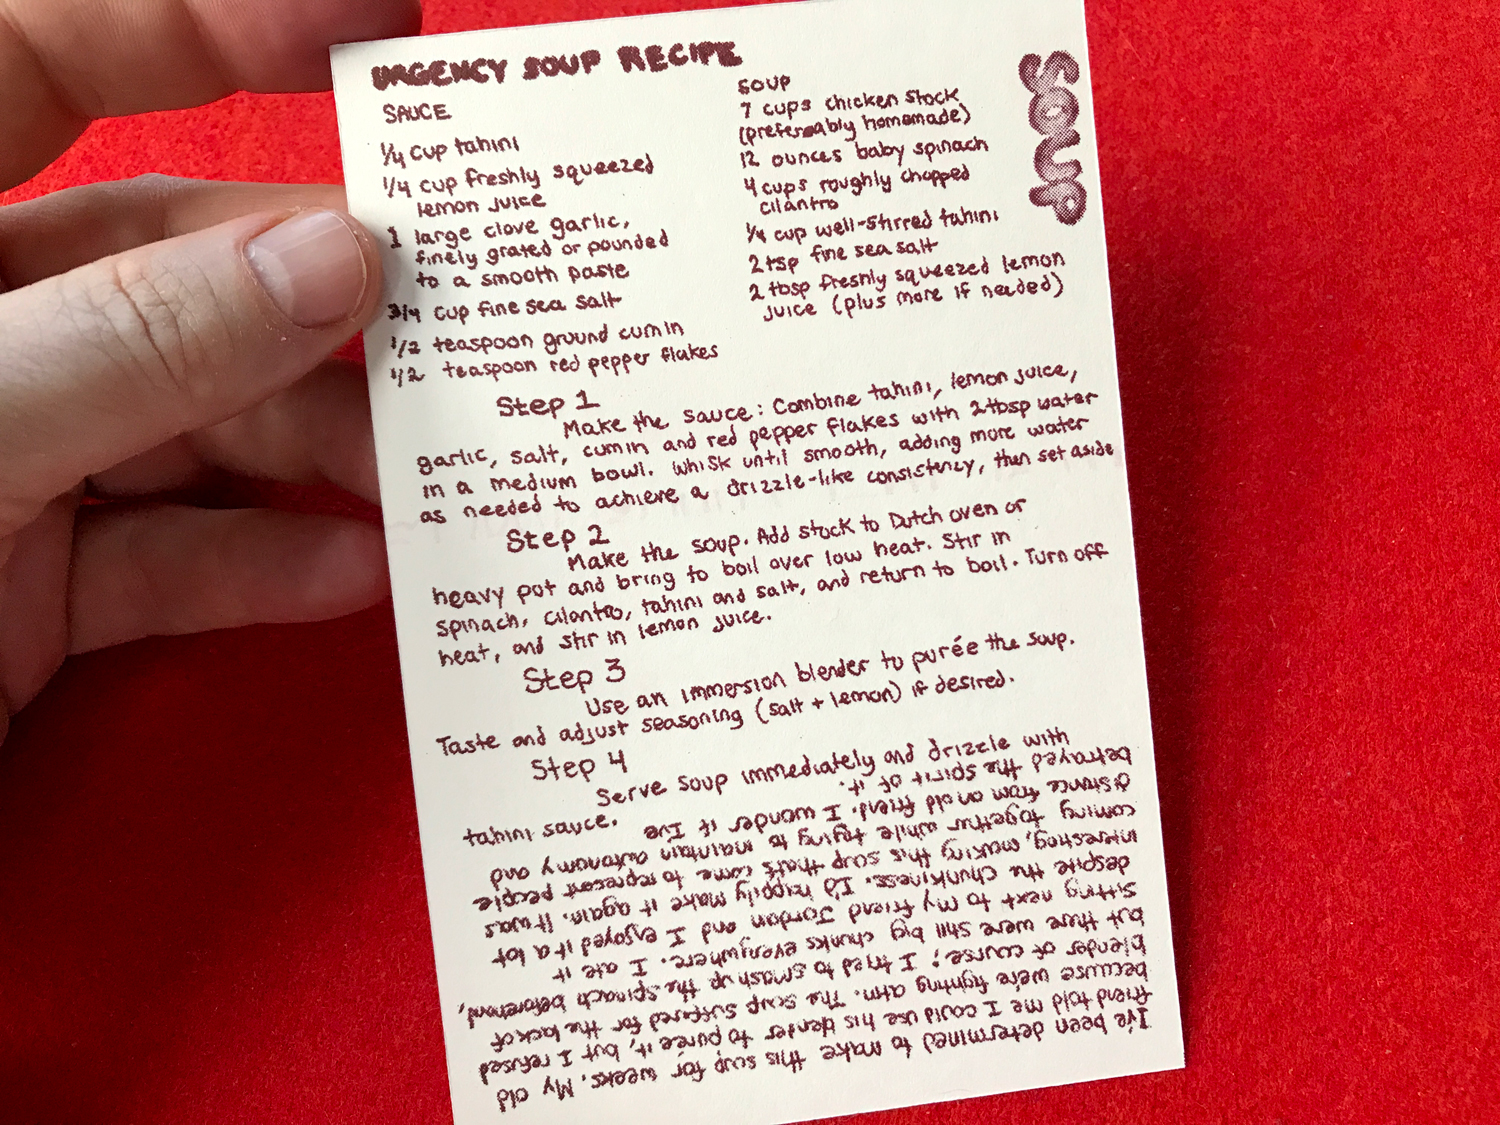 URGENCY SOUP RECIPE
SAUCE
1/4 cup tahini
1/4 cup freshly squeezed
lemon juice
1 large clove garlic,
finely grated or pounded
to a smooth paste
3/4 cup fine sea salt
1/2 teaspoon ground cumin
1/2 teaspoon red pepper flakes
SOUP
7 cups chicken stock
(preferably homemade)
12 ounces baby spinach
4 cups roughly chopped
cilantro
1/4 cup well-stirred tahini
2 tsp fine sea salt
2 tbsp freshly squeezed lemon
juice (plus more if needed)
SOUP
Step 1
Make the sauce: Combine tahini, lemon juice,
garlic, salt, cumin and red pepper flakes with 2 tbsp water
in a medium bowl. Whisk until smooth, adding more water
as needed to achieve a drizzle-like consistency, then set aside
Step 2
Make the soup. Add stock to Dutch oven or
heavy pot and bring to boil over low heat. Stir in
spinach, cilantro, tahini and salt, and return to boil. Turn off
heat, and stir in lemon juice.
Step 3
Use an immersion blender to purée the soup.
Taste and adjust seasoning (salt + lemon) if desired.
Step 4
Serve soup immediately and drizzle with
tahini sauce.
I've been determined to make this soup for weeks. My old
friend told me I could use his blender to purée it, but I refused
because we're fighting atm. The soup suffered for the lack of
blender of course; I tried to smash up the spinach beforehand,
but there were still big chunks everywhere. I ate it
sitting next to my friend Jordan and I enjoyed it a lot
despite the chunkiness. I'd happily make it again. It was
interesting, making this soup that's come to represent people
coming together while trying to maintain autonomy and
distance from an old friend. I wonder if I've
betrayed the spirit of it.